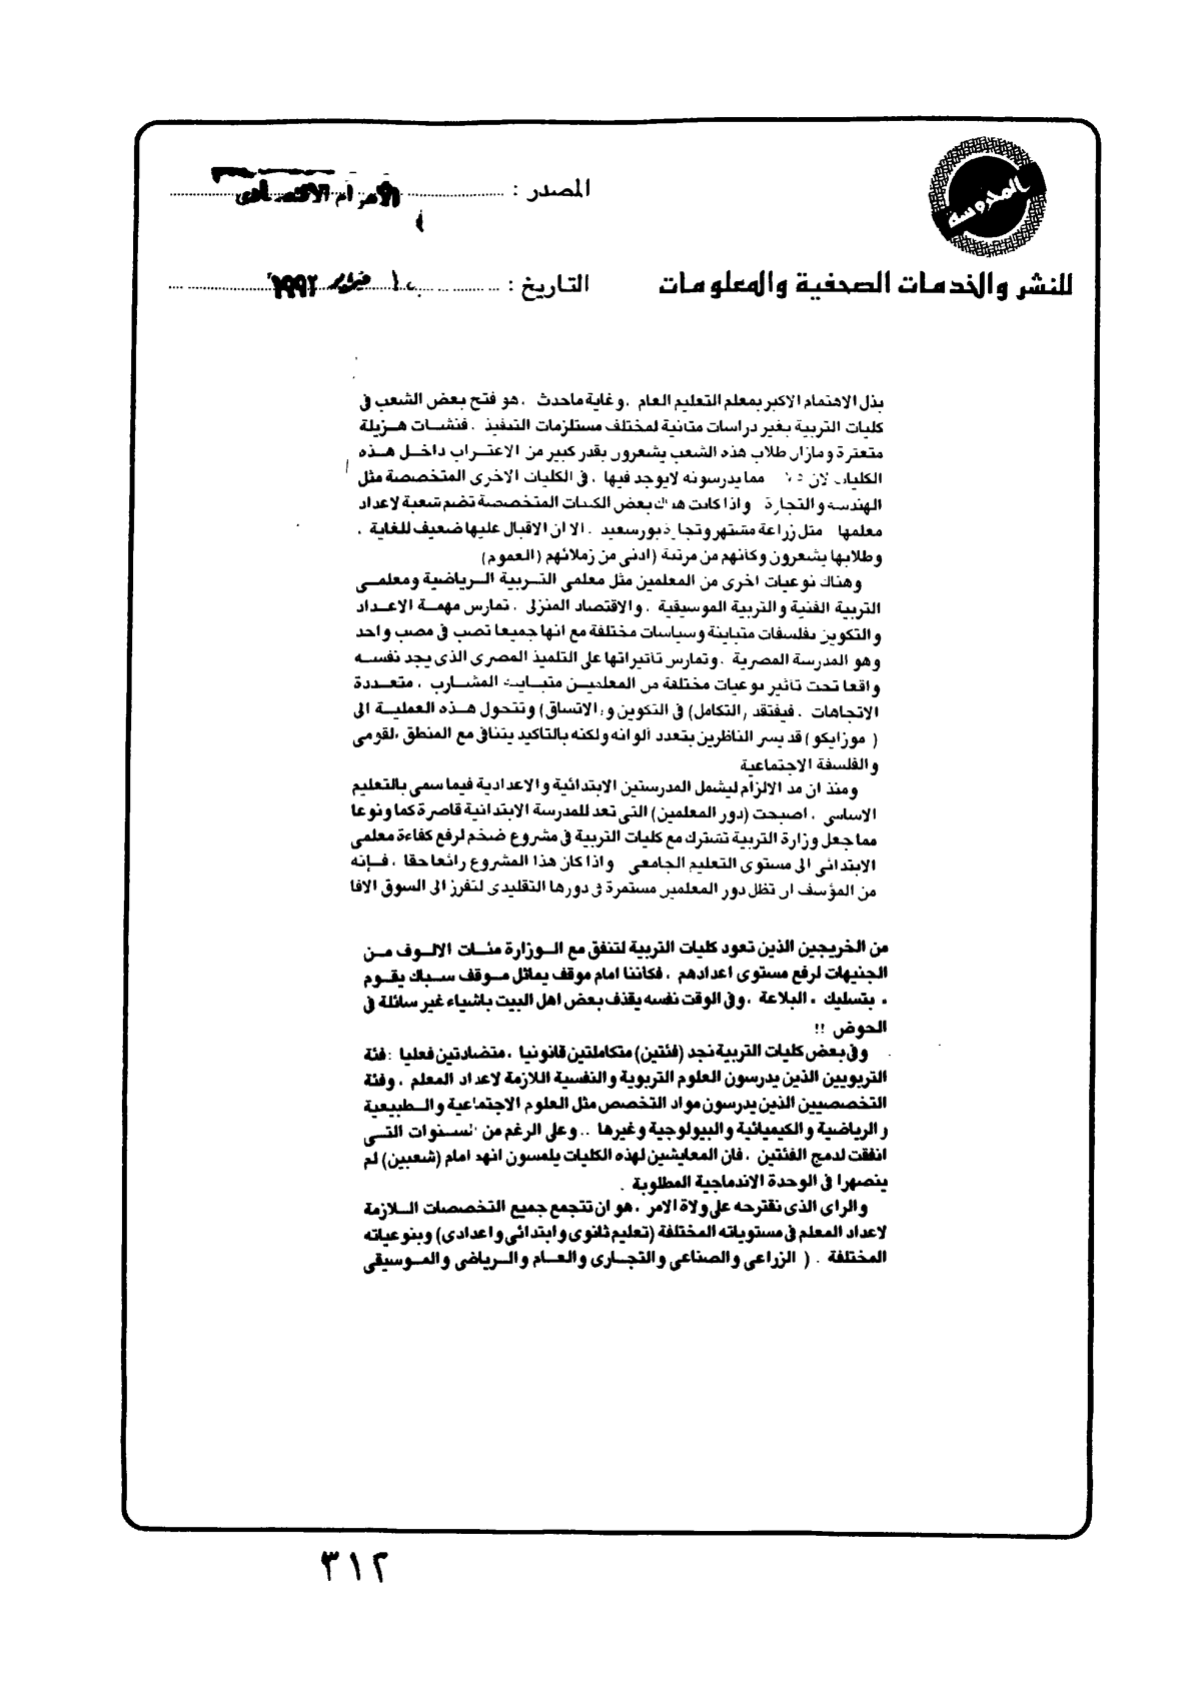 المحروسة
المصدر : الأهرام الاقتصادى
للنشر والخدمات الصحفية والمعلومات
التاريخ : فبراير ١٩٩٢
بذل الاهتمام الاكبر بمعلم التعليم العام . وغاية ماحدث . هو فتح بعض الشعب فى
كليات التربية بغير دراسات متانية لمختلف مستلزمات التنفيذ . فنشات هزيلة
متعثرة ومازال طلاب هذه الشعب يشعرون بقدر كبير من الاغتراب داخل هذه
الكليات لان مما يدرسونه لايوجد فيها . فى الكليات الاخرى المتخصصة مثل
الهندسة والتجارة واذا كانت هناك بعض الكليات المتخصصة تضم شعبة لاعداد
معلمها مثل زراعة مشتهر وتجارة بورسعيد . الا ان الاقبال عليها ضعيف للغاية .
وطلابها يشعرون وكأنهم من مرتبة (ادنى من زملائهم (العموم)
وهناك نوعيات اخرى من المعلمين مثل معلمى التربية الرياضية ومعلمى
التربية الفنية والتربية الموسيقية . والاقتصاد المنزلى . تمارس مهمة الاعداد
والتكوين بفلسفات متباينة وسياسات مختلفة مع انها جميعا تصب فى مصب واحد
وهو المدرسة المصرية . وتمارس تأثيراتها على التلميذ المصرى الذى يجد نفسه
واقعا تحت تأثير نوعيات مختلفة من المعلمين متباينة المشارب . متعددة
الاتجاهات . فيفتقد (التكامل) فى التكوين و(الاتساق) وتتحول هذه العملية الى
( موزايكو ) قد يسر الناظرين بتعدد ألوانه ولكنه بالتاكيد يتنافى مع المنطق .لقومى
والفلسفة الاجتماعية
ومنذ ان مد الالزام ليشمل المدرستين الابتدائية والاعدادية فيما سمى بالتعليم
الاساسى . اصبحت (دور المعلمين) التى تعد للمدرسة الابتدائية قاصرة كما ونوعا
مما جعل وزارة التربية تشترك مع كليات التربية فى مشروع ضخم لرفع كفاءة معلمى
الابتدائى الى مستوى التعليم الجامعى واذا كان هذا المشروع رائعا حقا . فإنه
من المؤسف ان تظل دور المعلمين مستمرة فى دورها التقليدى لتفرز الى السوق الافا
من الخريجين الذين تعود كليات التربية لتنفق مع الوزارة مئات الالوف من
الجنيهات لرفع مستوى اعدادهم . فكاننا امام موقف يماثل موقف سباك يقوم
. بتسليك . البلاعة . وفى الوقت نفسه يقذف بعض اهل البيت باشياء غير سائلة فى
الحوض !!
وفى بعض كليات التربية نجد (فئتين) متكاملتين قانونيا . متضادتين فعليا : فئة
التربويين الذين يدرسون العلوم التربوية والنفسية اللازمة لاعداد المعلم . وفئة
التخصصيين الذين يدرسون مواد التخصص مثل العلوم الاجتماعية والطبيعية
والرياضية والكيميائية والبيولوجية وغيرها .. وعلى الرغم من السنوات التى
انفقت لدمج الفئتين . فان المعايشين لهذه الكليات يلمسون انهم امام (شعبين) لم
ينصهرا فى الوحدة الاندماجية المطلوبة .
والراى الذى نقترحه على ولاة الامر . هو ان تتجمع جميع التخصصات اللازمة
لاعداد المعلم فى مستوياته المختلفة (تعليم ثانوى وابتدائى واعدادى) وبنوعياته
المختلفة . ( الزراعى والصناعى والتجارى والعام والرياضى والموسيقى
٣١٢